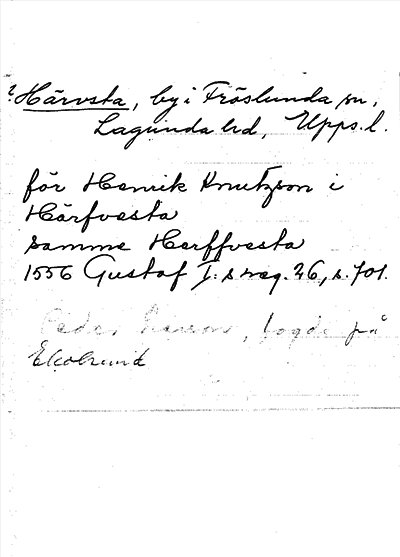 ? Härvsta, by i Fröslunda sn,
Lagunda hd, Upps. l.
för Henrik Knutzson i
Härfvesta
samme Herffvesta
1556 Gustaf I:s reg. 26, s. 701.
Peder Larsson, fogde på
Ekolsund